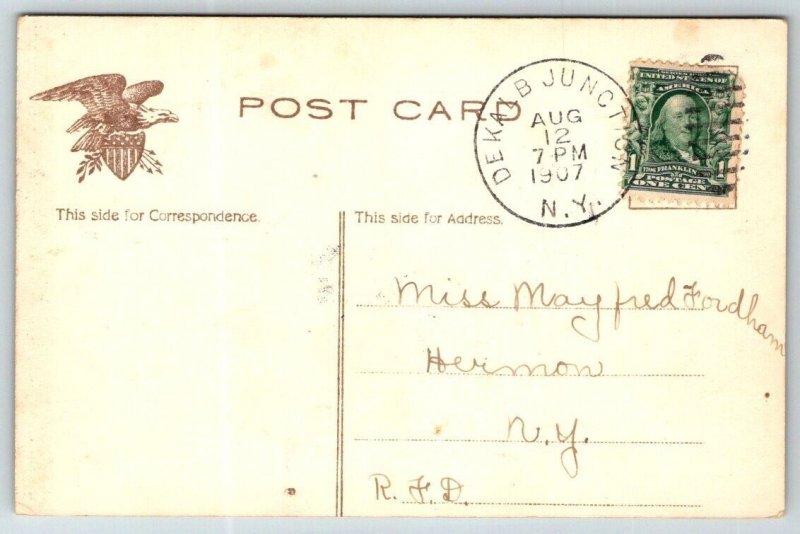 POST CARD
DEKALB JUNCTION
AUG
12
7 PM
1907
N.Y.
UNITED STATES OF
AMERICA
FRANKLIN
1 POSTAGE 1
ONE CENT
This side for Correspondence.
This side for Address.
Miss Mayfred Fordham
Hermon
N.Y.
R.F.D.